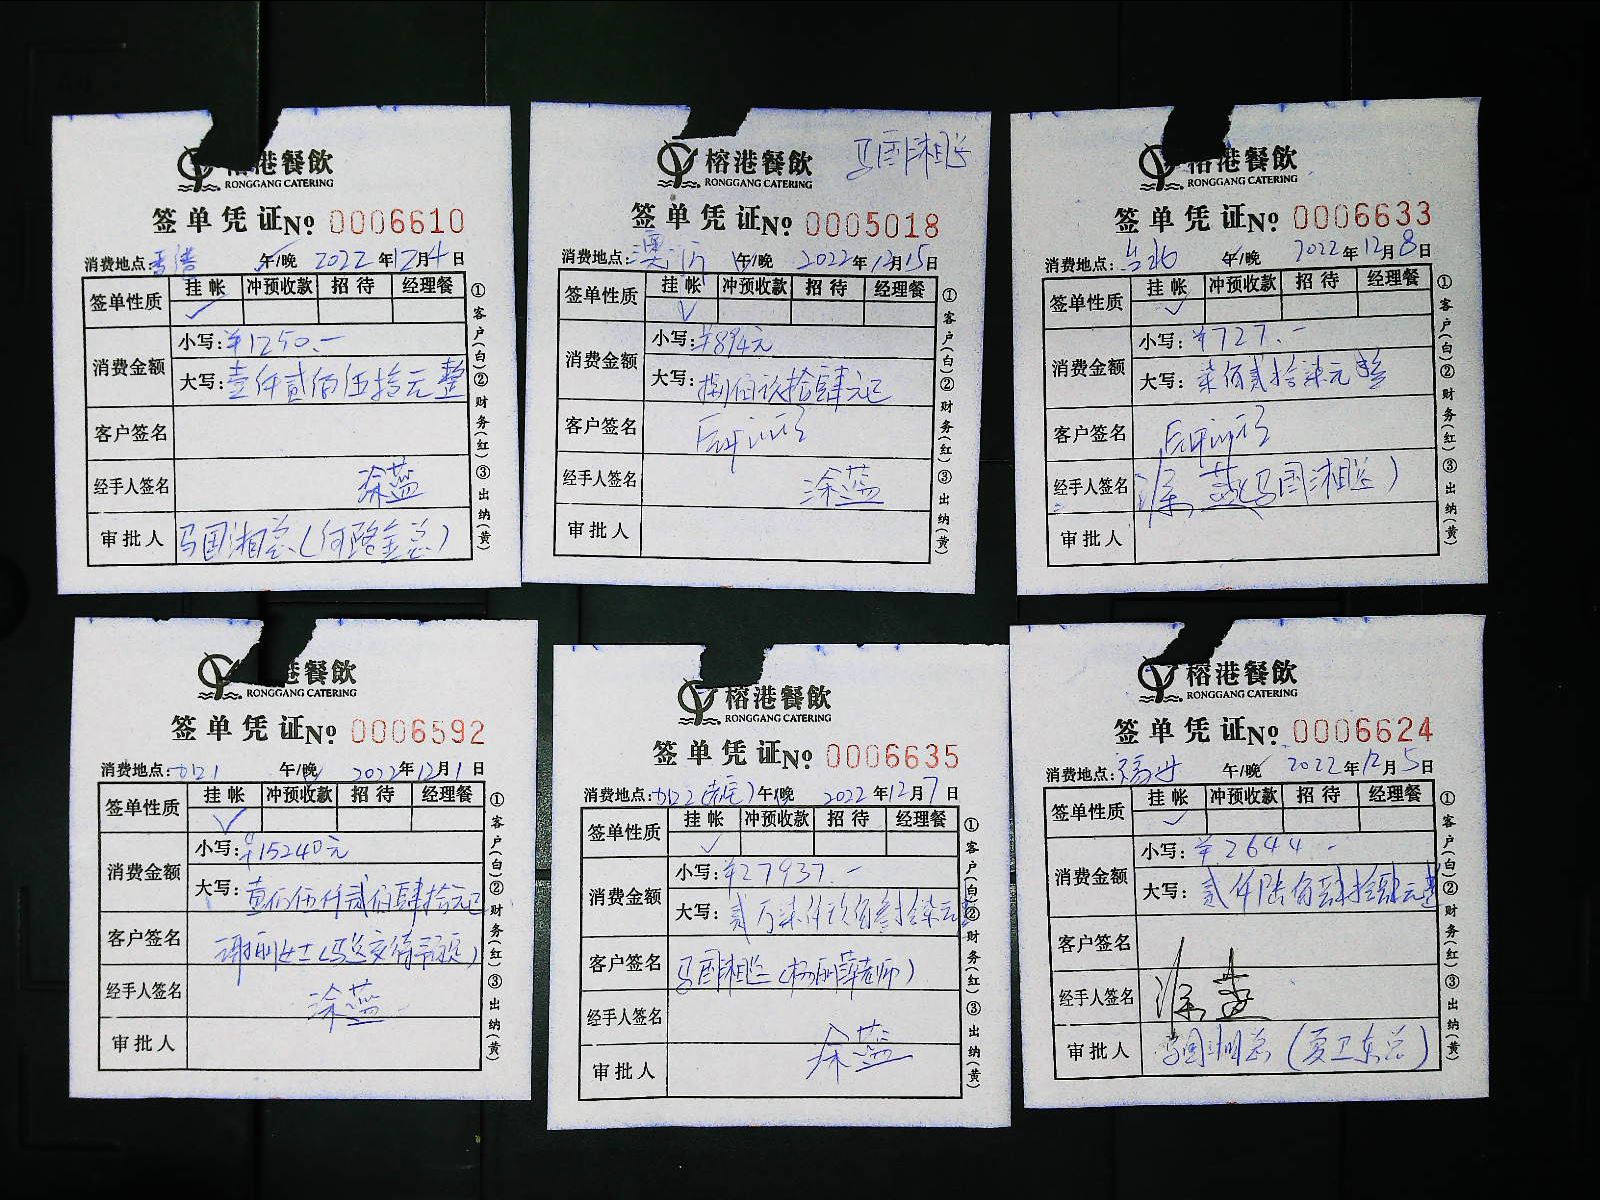 港餐飲
RONGGANG CATERING
签单凭证№ 0006610
消费地点:香港 午/晚 2022年12月4日
签单性质 挂帐 冲预收款 招待 经理餐
消费金额 小写:¥1250.-
大写:壹仟贰佰伍拾元整
客户签名
经手人签名 涂蓝
审批人 马国湘总(何路金总)
①客户(白)②财务(红)③出纳(黄)
马国湘总
榕港餐飲
RONGGANG CATERING
签单凭证№ 0005018
消费地点: 午/晚 2022年12月15日
签单性质 挂帐 冲预收款 招待 经理餐
消费金额 小写:¥894元
大写:捌佰玖拾肆元正
客户签名
经手人签名 涂蓝
审批人
①客户(白)②财务(红)③出纳(黄)
榕港餐飲
RONGGANG CATERING
签单凭证№ 0006633
消费地点:台北 午/晚 2022年12月8日
签单性质 挂帐 冲预收款 招待 经理餐
消费金额 小写:¥727.-
大写:柒佰贰拾柒元整
客户签名
经手人签名 (马国湘总)
审批人
①客户(白)②财务(红)③出纳(黄)
港餐飲
RONGGANG CATERING
签单凭证№ 0006592
消费地点: 午/晚 2022年12月1日
签单性质 挂帐 冲预收款 招待 经理餐
消费金额 小写:¥15240元
大写:壹万伍仟贰佰肆拾元正
客户签名 女士
经手人签名 涂蓝
审批人
①客户(白)②财务(红)③出纳(黄)
榕港餐飲
RONGGANG CATERING
签单凭证№ 0006635
消费地点: 午/晚 2022年12月7日
签单性质 挂帐 冲预收款 招待 经理餐
消费金额 小写:¥27937.-
大写:贰万柒仟玖佰叁拾柒元整
客户签名 马国湘总(杨丽萍老师)
经手人签名
审批人 涂蓝
①客户(白)②财务(红)③出纳(黄)
榕港餐飲
RONGGANG CATERING
签单凭证№ 0006624
消费地点: 午/晚 2022年12月5日
签单性质 挂帐 冲预收款 招待 经理餐
消费金额 小写:¥2644-
大写:贰仟陆佰肆拾肆元整
客户签名
经手人签名
审批人 马国湘总(夏卫东总)
①客户(白)②财务(红)③出纳(黄)